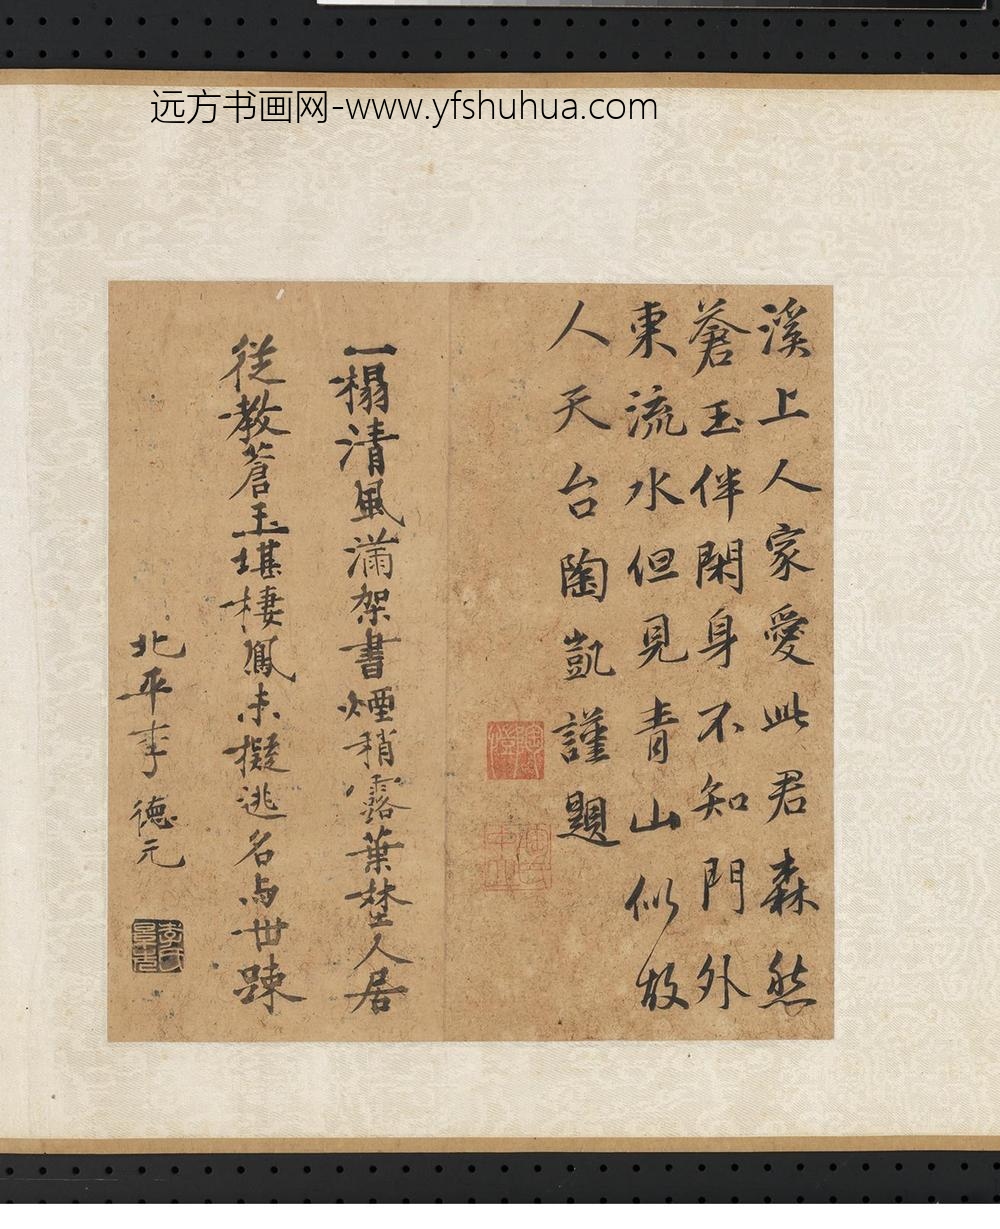 远方书画网-www.yfshuhua.com
溪上人家愛此君森然
蒼玉伴閑身不知門外
東流水但見青山似故
人天台陶凱謹題
一榻清風滿架書煙稍露葉埜人居
從教蒼玉堪棲鳳未擬逃名与世踈
北平李德元